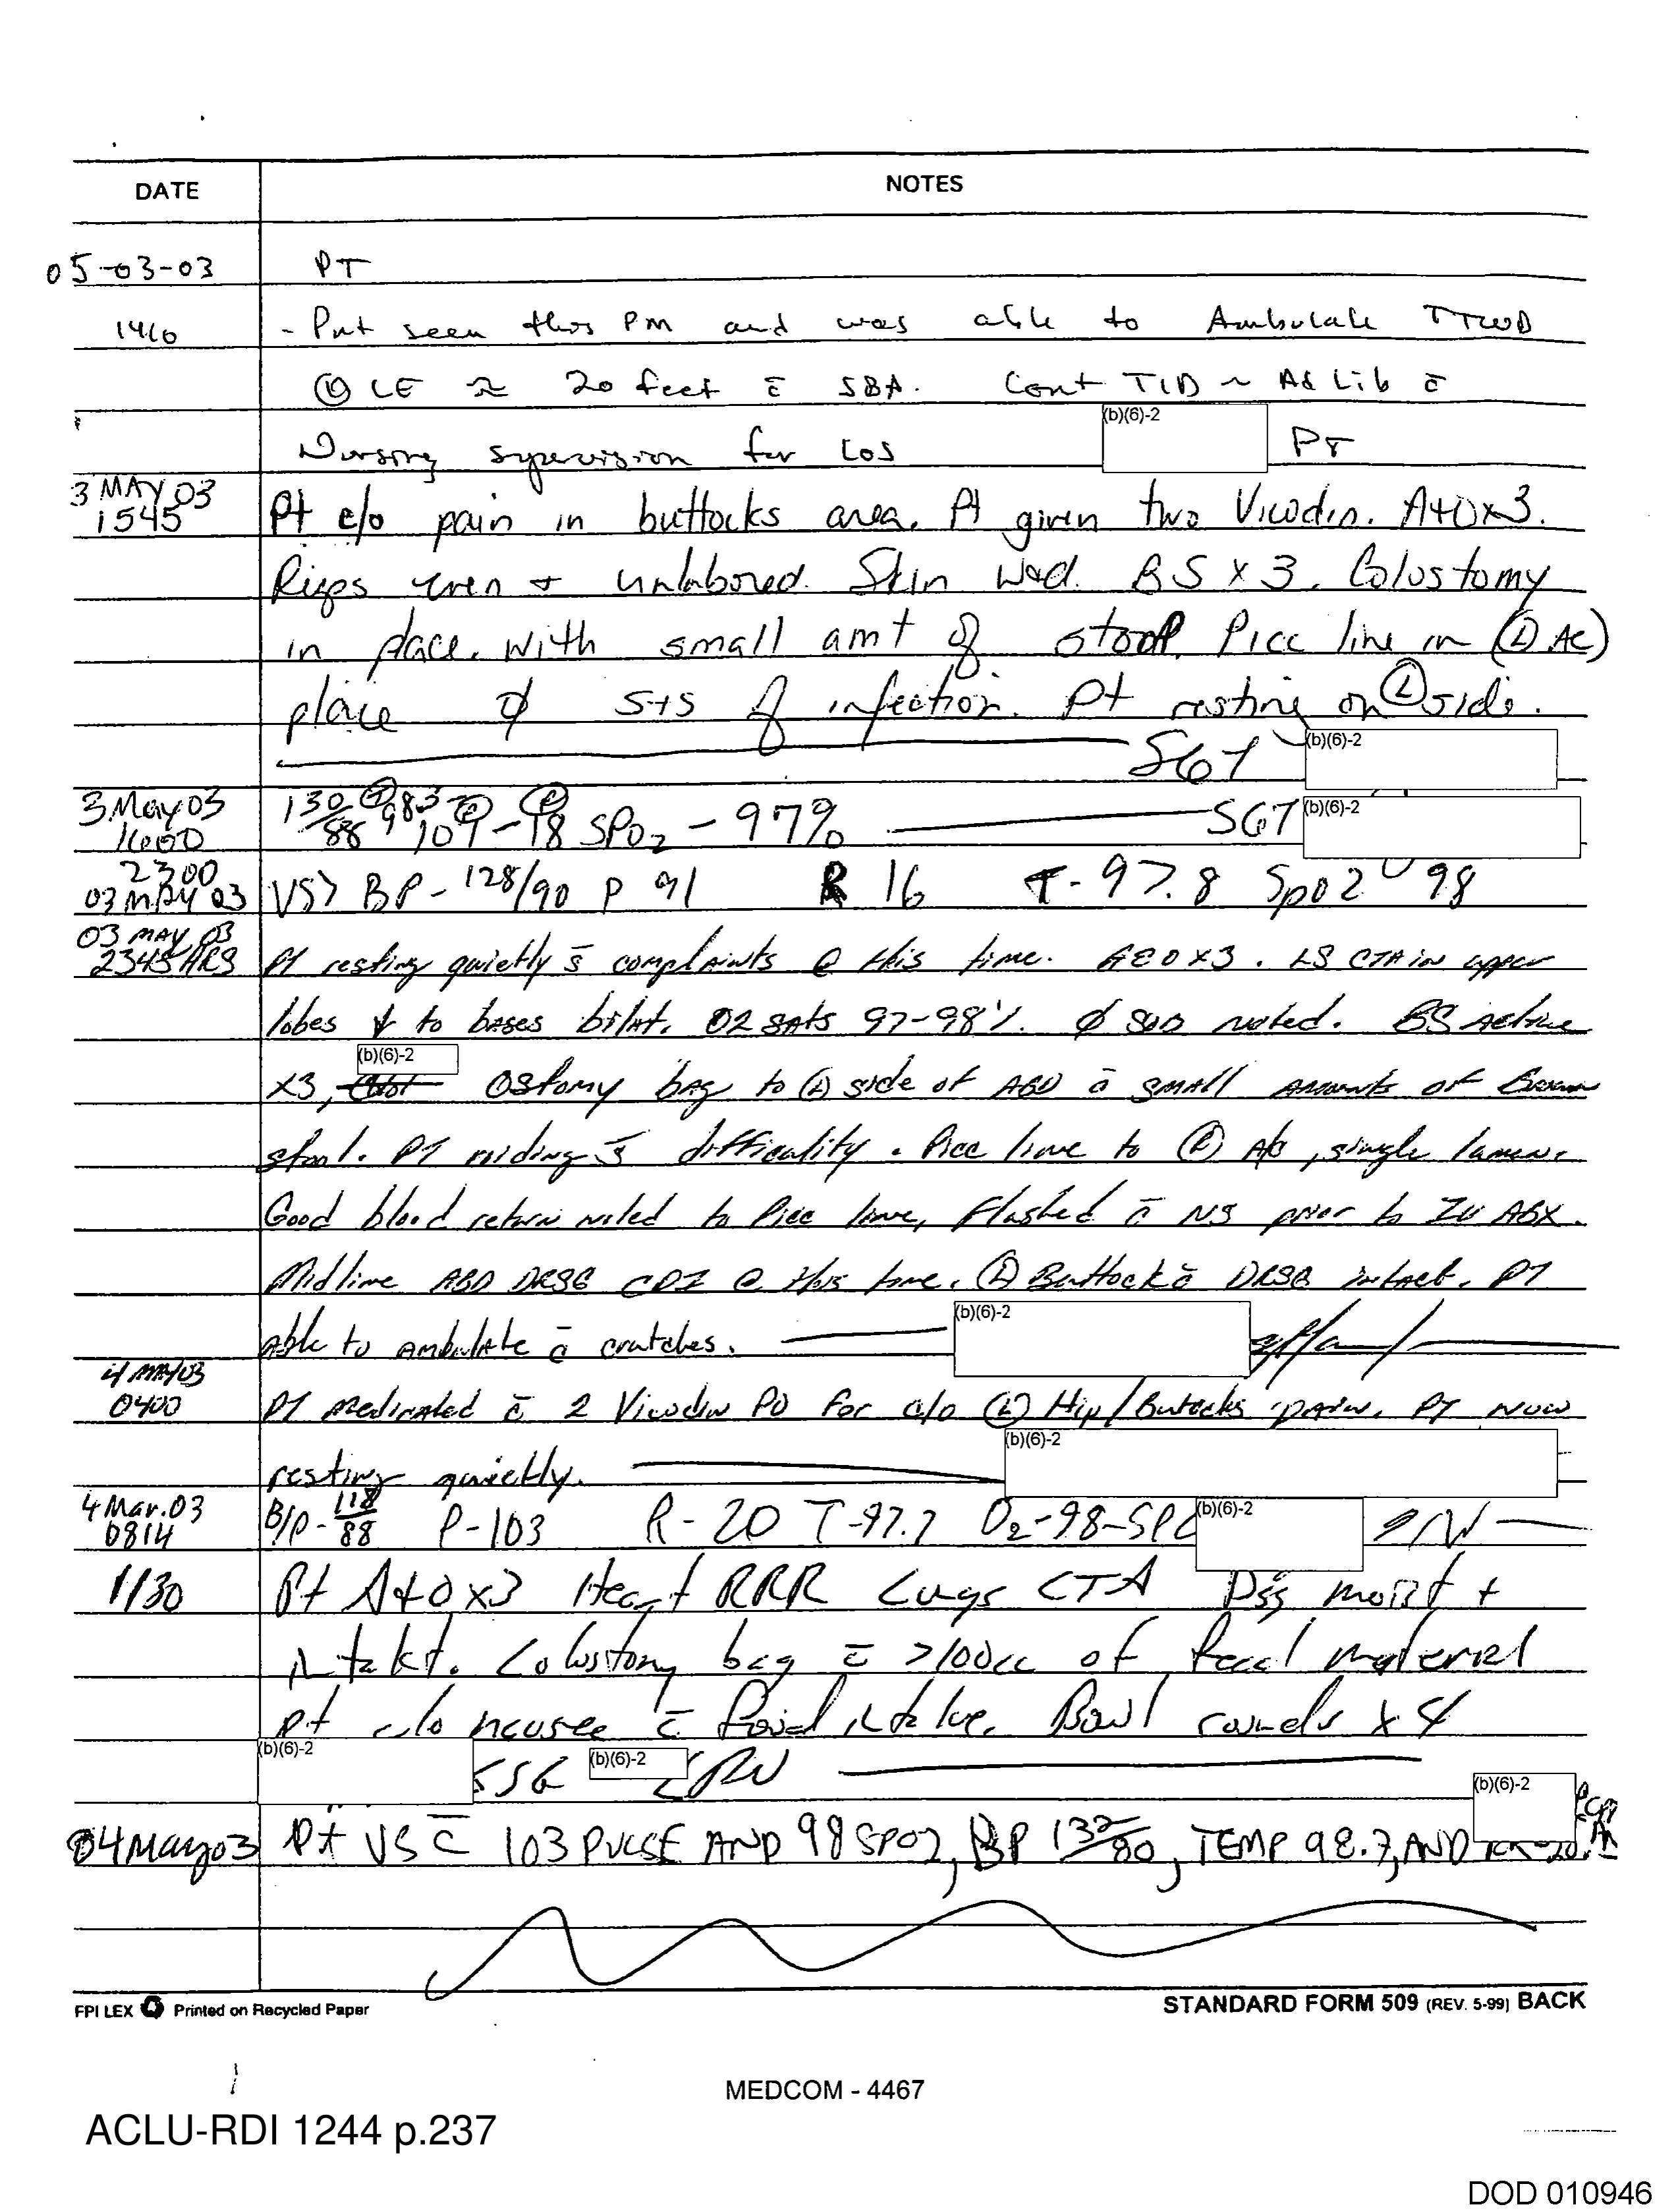 DATE NOTES
05-03-03 PT
1410 - Pnt seen this PM and was able to Ambulate TTWB
LE ≈ 20 feet c̄ SBA. Cont TID ~ Ad Lib c̄
(b)(6)-2
Nursing supervision for LOS PT
3 MAY 03
1545 Pt c/o pain in buttocks area. Pt given two Vicodin. A+Ox3.
Resps even + unlabored. Skin W+d. BS x 3. Colostomy
in place. with small amt of stool. Picc line in (L) AC)
place ø S+S of infection. Pt resting on (L) side.
SGT (b)(6)-2
3 May 03
1600 130/88 (T) 98.3 (P) 109 - (R) 18 SPO2 - 97% SGT (b)(6)-2
2300
03 MAY 03 VS> BP - 128/90 P 91 R 16 T - 97.8 Spo2 98
03 MAY 03
2345 HRS Pt resting quietly s̄ complaints @ this time. A&Ox3. LS CTA in upper
lobes ↓ to bases bilat. O2 sats 97-98%. ø SOB noted. BS Active
(b)(6)-2
x3, Ostomy bag to (L) side of ABD c̄ small amounts of Brown
stool. PT voiding s̄ difficulity. Picc line to A/C, single lumen.
Good blood return noted to Picc line, Flushed c̄ NS prior to IV ABX.
Midline ABD DRSG CDI @ this time. (L) Buttock c̄ DRSG intact. PT
able to ambulate c̄ crutches. (b)(6)-2
4 MAY 03
0400 PT medicated c̄ 2 Vicodin PO for c/o (L) Hip/Buttocks pain. PT now
(b)(6)-2
resting quietly.
4 Mar. 03
0814 B/P - 118/88 P-103 R-20 T-97.7 O2-98-SPC (b)(6)-2 91W
1130 Pt A+Ox3 Heart RRR Lungs CTA Dsg moist +
intakt. Colostomy bag c̄ >100cc of fecal material
pt c/o nausee c̄ food intake. Bowl sounds x 4
(b)(6)-2 SSG (b)(6)-2 LPN
(b)(6)-2
04 May 03 Pt VS c̄ 103 PULSE AND 98 SPO2, BP 132/80, TEMP 98.7, AND RR-20.
FPI LEX Printed on Recycled Paper STANDARD FORM 509 (REV. 5-99) BACK
MEDCOM - 4467
ACLU-RDI 1244 p.237
DOD 010946